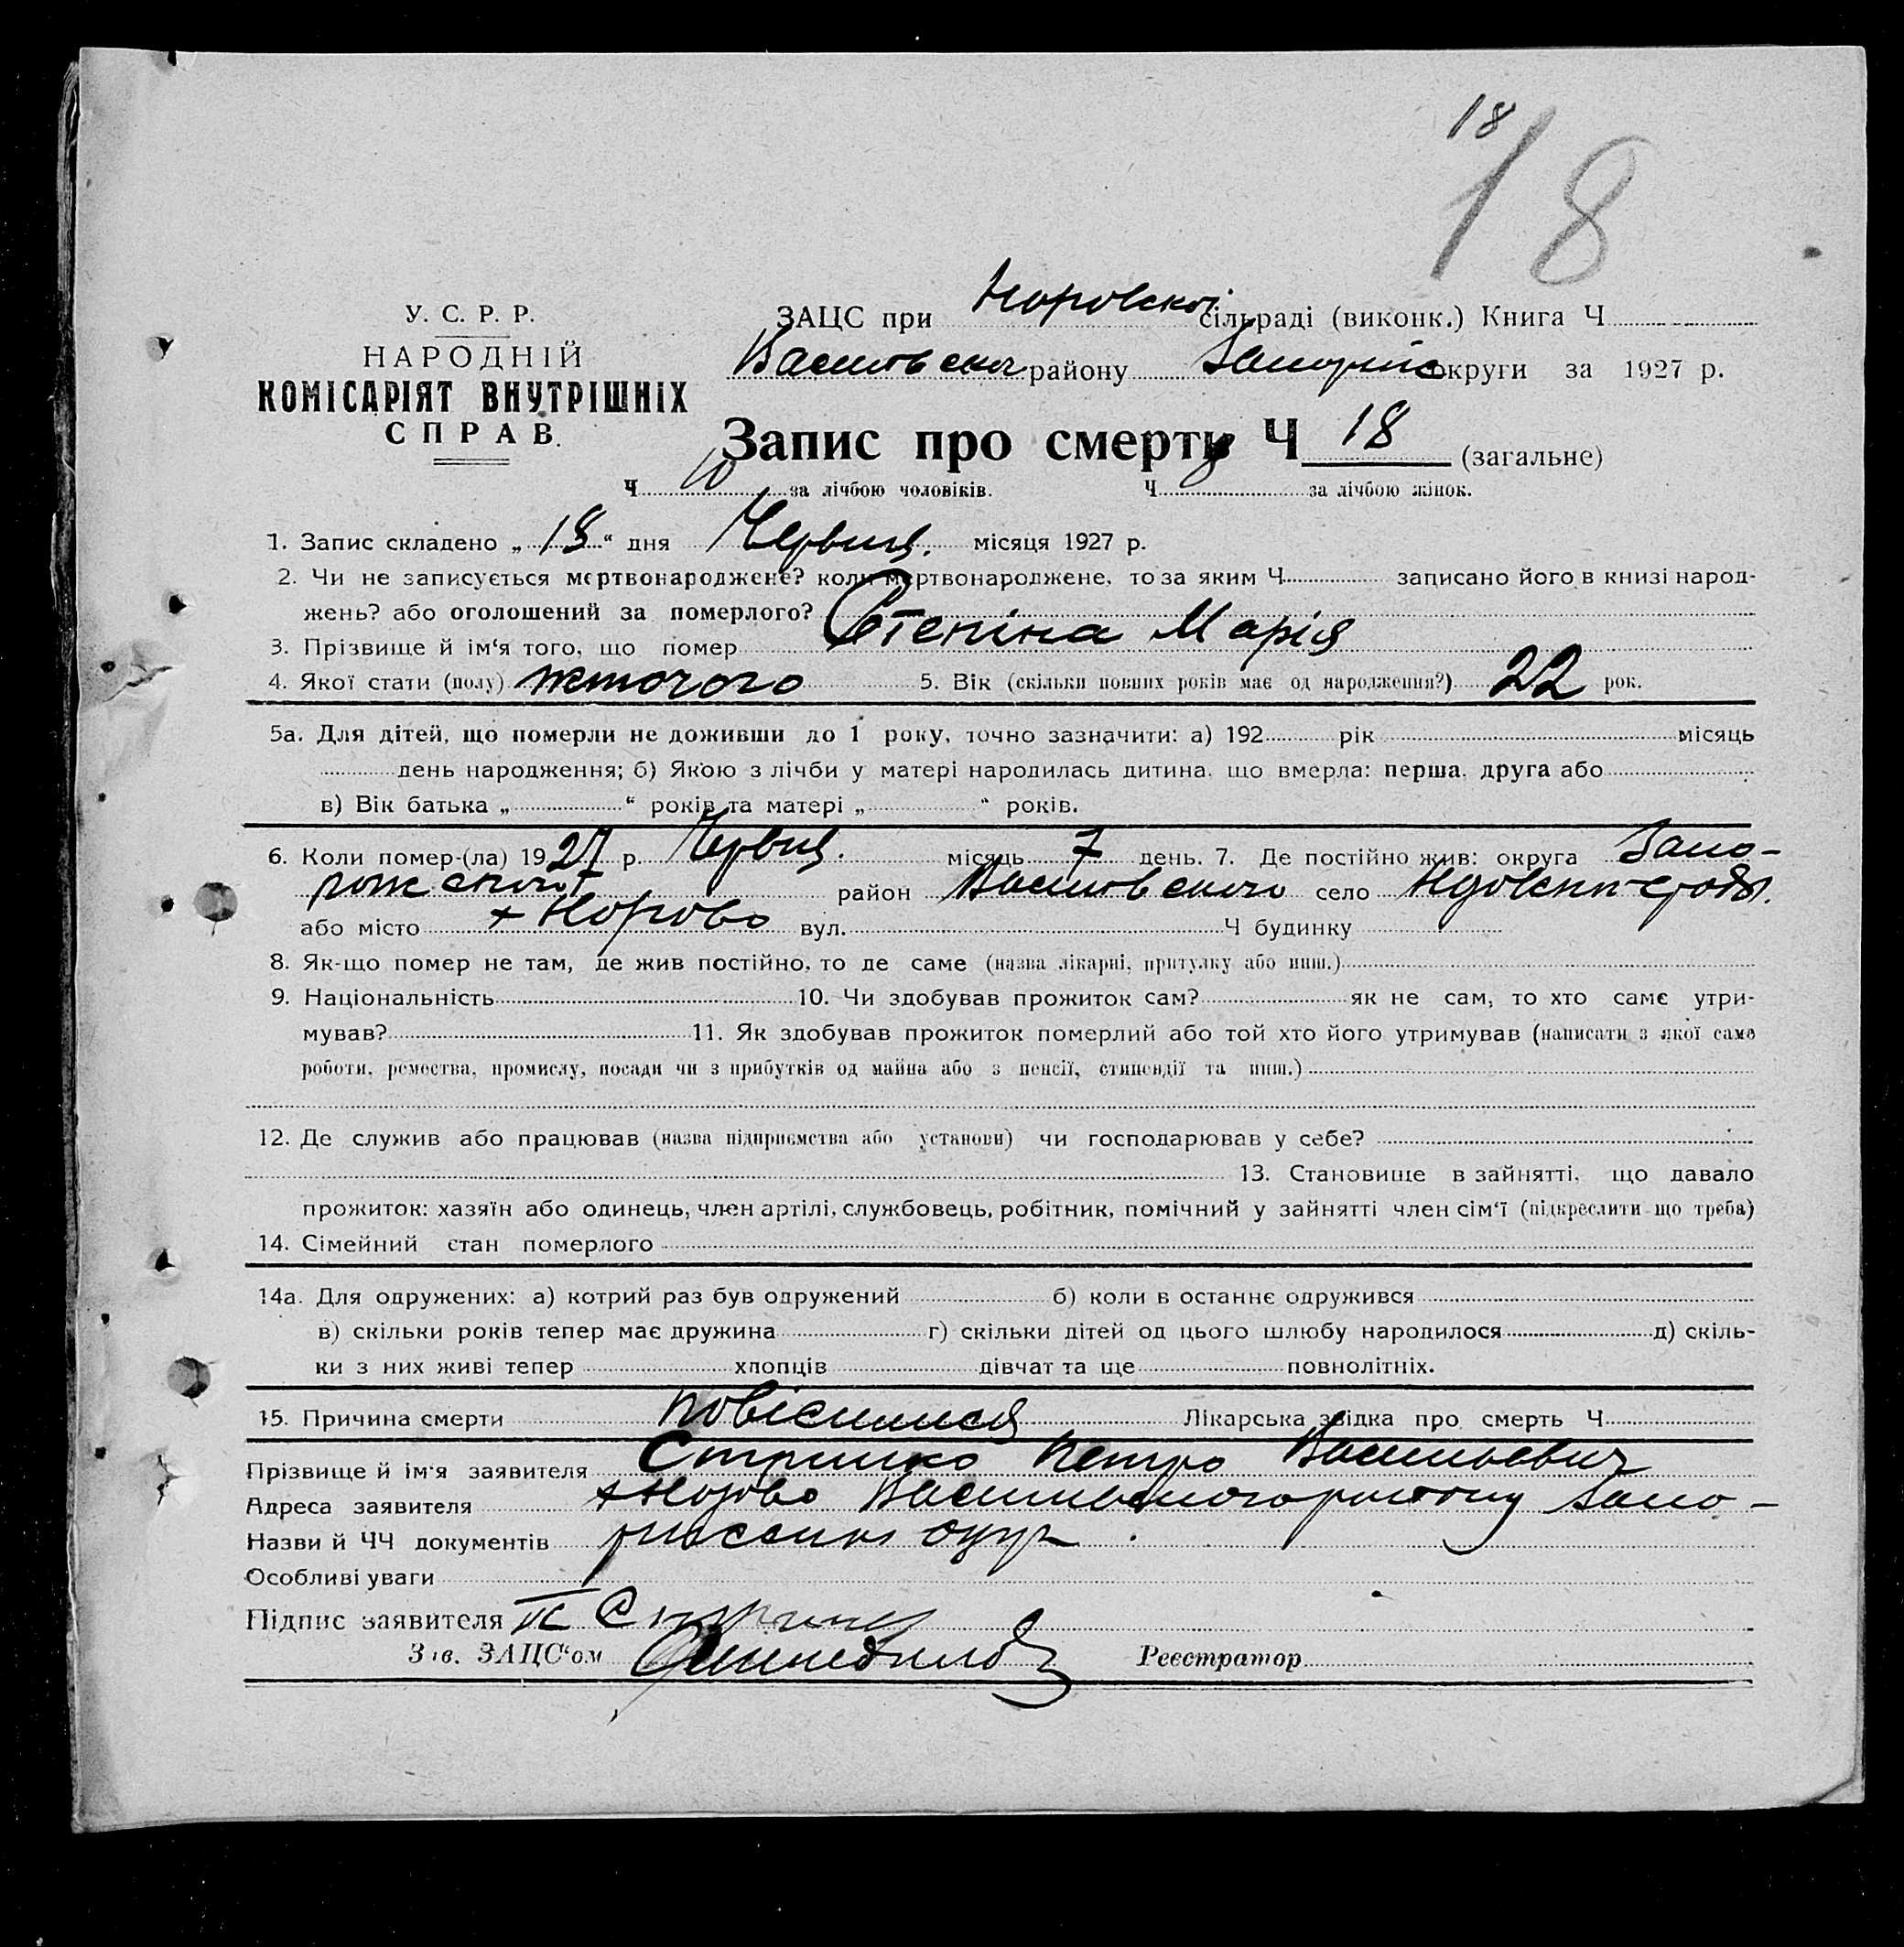 18
18
У. С. Р. Р.
НАРОДНІЙ
КОМІСАРІЯТ ВНУТРІШНІХ
СПРАВ.
ЗАЦС при сільраді (виконк.) Книга Ч
району округи за 1927 р.
Запис про смерть Ч 18 (загальне)
Ч 10 за лічбою чоловіків. Ч за лічбою жінок.
1. Запис складено „ 18 “ дня Червця. місяця 1927 р.
2. Чи не записується мертвонароджене? коли мертвонароджене, то за яким Ч записано його в книзі народ-
жень? або оголошений за померлого?
3. Прізвище й ім‘я того, що помер Стеніна Марія
4. Якої стати (полу) жіночого 5. Вік (скільки повних років має од народження?) 22 рок.
5а. Для дітей, що померли не доживши до 1 року, точно зазначити: а) 192 рік місяць
день народження; б) Якою з лічби у матері народилась дитина, що вмерла: перша, друга або
в) Вік батька „ “ років та матері „ “ років.
6. Коли помер-(ла) 1927 р. Червця. місяць 7 день. 7. Де постійно жив: округа Запо-
район село
або місто вул. Ч будинку
8. Як-що помер не там, де жив постійно, то де саме (назва лікарні, притулку або инш.)
9. Національність 10. Чи здобував прожиток сам? як не сам, то хто саме утри-
мував? 11. Як здобував прожиток померлий або той хто його утримував (написати з якої саме
роботи, ремества, промислу, посади чи з прибутків од майна або з пенсії, стипендії та инш.)
12. Де служив або працював (назва підприємства або установи) чи господарював у себе?
13. Становище в зайнятті, що давало
прожиток: хазяїн або одинець, член артілі, службовець, робітник, помічний у зайнятті член сім‘ї (підкреслити що треба)
14. Сімейний стан померлого
14а. Для одружених: а) котрий раз був одружений б) коли в останнє одружився
в) скільки років тепер має дружина г) скільки дітей од цього шлюбу народилося д) скіль-
ки з них живі тепер хлопців дівчат та ще повнолітніх.
15. Причина смерти повісилися Лікарська звідка про смерть Ч
Прізвище й ім‘я заявителя Петро Васильевич
Адреса заявителя Запо-
Назви й ЧЧ документів
Особливі уваги
Підпис заявителя
Зав. ЗАЦС‘ом Реєстратор